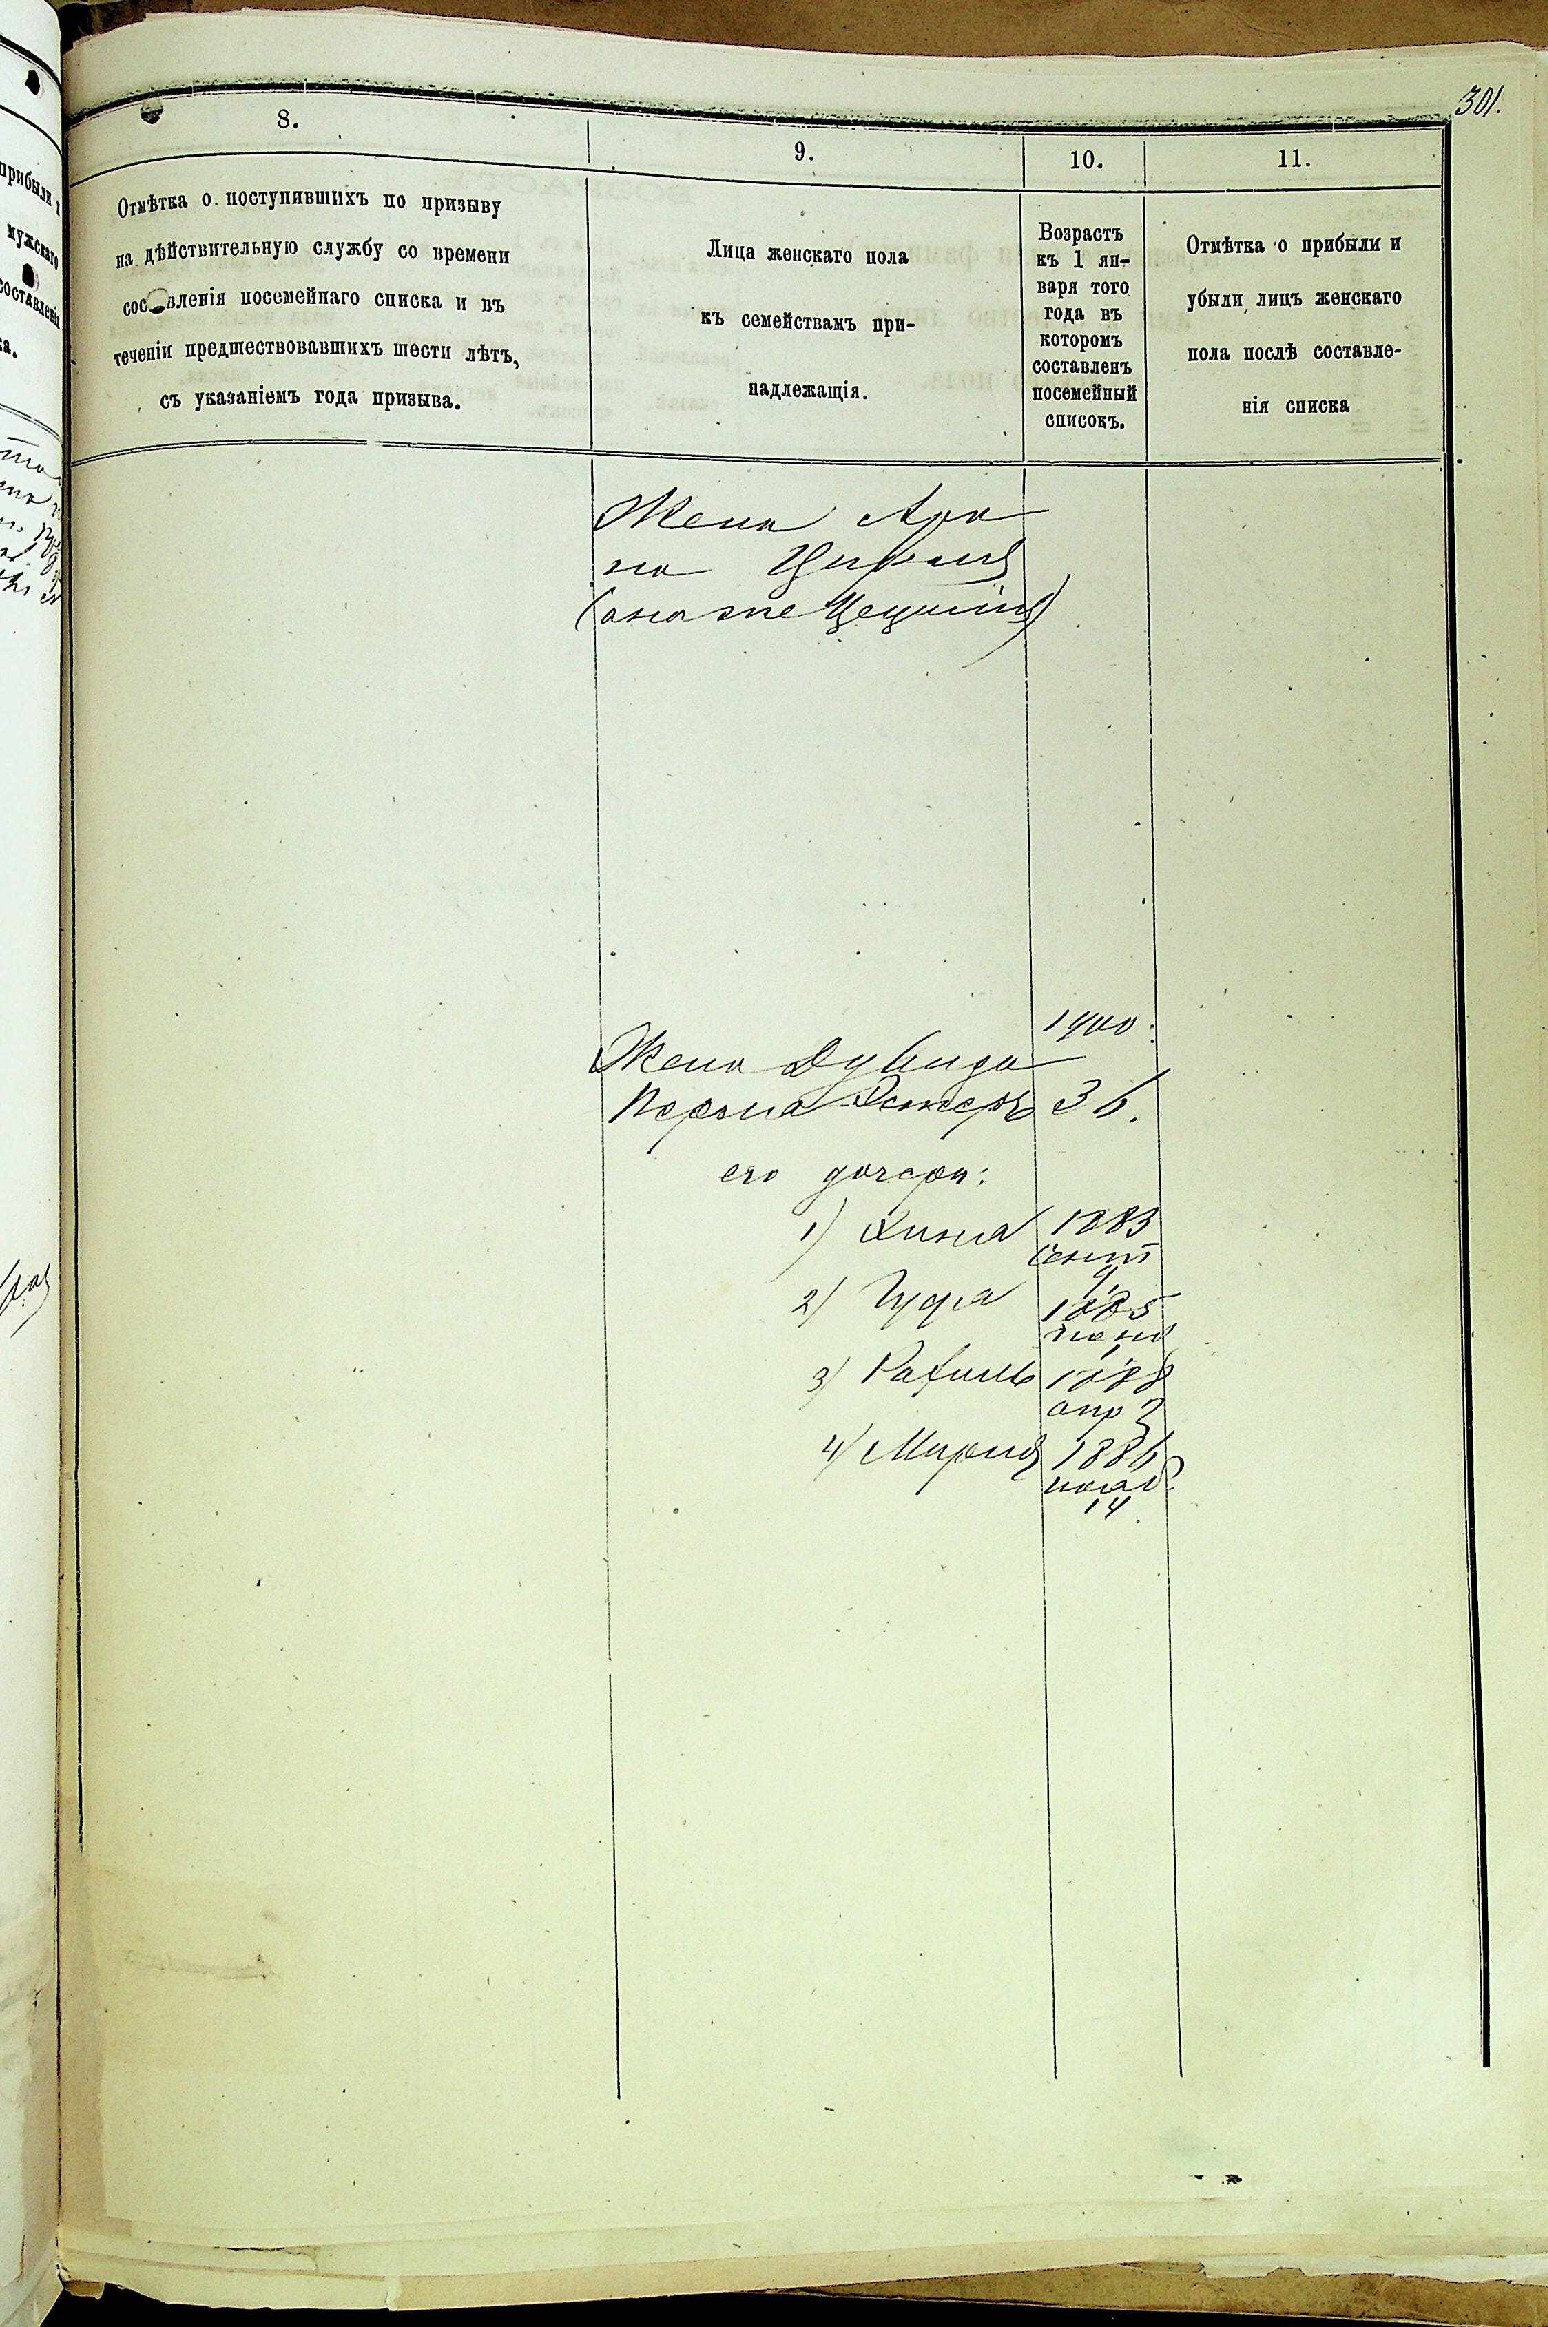 301.
8.
9.
10.
11.
Отмѣтка о поступившихъ по призыву
на дѣйствительную службу со времени
составленія посемейнаго списка и въ
теченіи предшествовавшихъ шести лѣтъ,
съ указаніемъ года призыва.
Лица женскаго пола
къ семействамъ при-
надлежащія.
Возрастъ
къ 1 ян-
варя того
года въ
которомъ
составленъ
посемейный
списокъ.
Отмѣтка о прибыли и
убыли лицъ женскаго
пола послѣ составле-
нія списка
Жена Аро
на
(она же
1900.
Жена Дувида
Перла Эстеръ 36.
его дочери:
1) Хина 1883
сент
9
2) 1885
3) Рахиль 1888
апр 3
4) Мирля 1886
нояб.
14
прибыли и
мужскаго
составленія